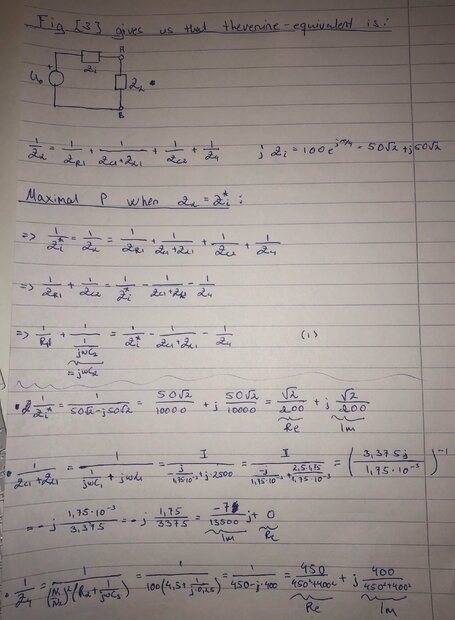 Fig [3] gives us that thevenine-equivalent is:
U₀ + Zi A Zx B
1/Zx = 1/ZR1 + 1/(ZC1+ZL1) + 1/ZC2 + 1/Z4 ; Zi = 100e^(jπ/4) = 50√2 + j50√2
Maximal P when Zx = Zi* :
=> 1/Zi* = 1/Zx = 1/ZR1 + 1/(ZC1+ZL1) + 1/ZC2 + 1/Z4
=> 1/ZR1 + 1/ZC2 = 1/Zi* - 1/(ZC1+ZL1) - 1/Z4
=> 1/R1 + 1/(1/jωC2) = 1/Zi* - 1/(ZC1+ZL1) - 1/Z4 (1)
= jωC2
• 1/Zi* = 1/(50√2-j50√2) = 50√2/10000 + j 50√2/10000 = √2/200 + j √2/200
Re Im
• 1/(ZC1+ZL1) = 1/(1/jωC1 + jωL1) = 1/(-j/1,75·10⁻³ + j·2500) = 1/(-j/1,75·10⁻³ + 2,5·1,75/1,75·10⁻³) = (3,375j/1,75·10⁻³)⁻¹
= -j 1,75·10⁻³/3,375 = -j 1,75/3375 = -7/13500 j + 0
Im Re
• 1/Z4 = 1/((N1/N2)²(R2 + 1/jωC3)) = 1/(100(4,5 + 1/(j·0,25))) = 1/(450-j·400) = 450/(450²+400²) + j 400/(450²+400²)
Re Im